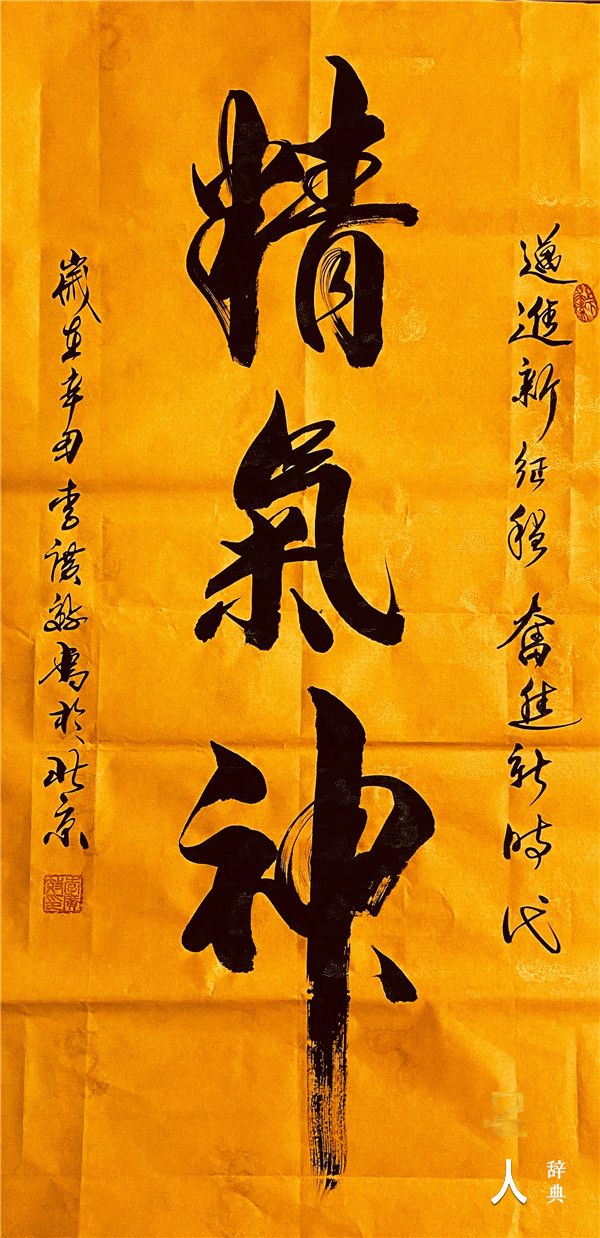 邁進新征程 奮進新時代
精氣神
歲在辛丑 李 書於北京
人
辞典